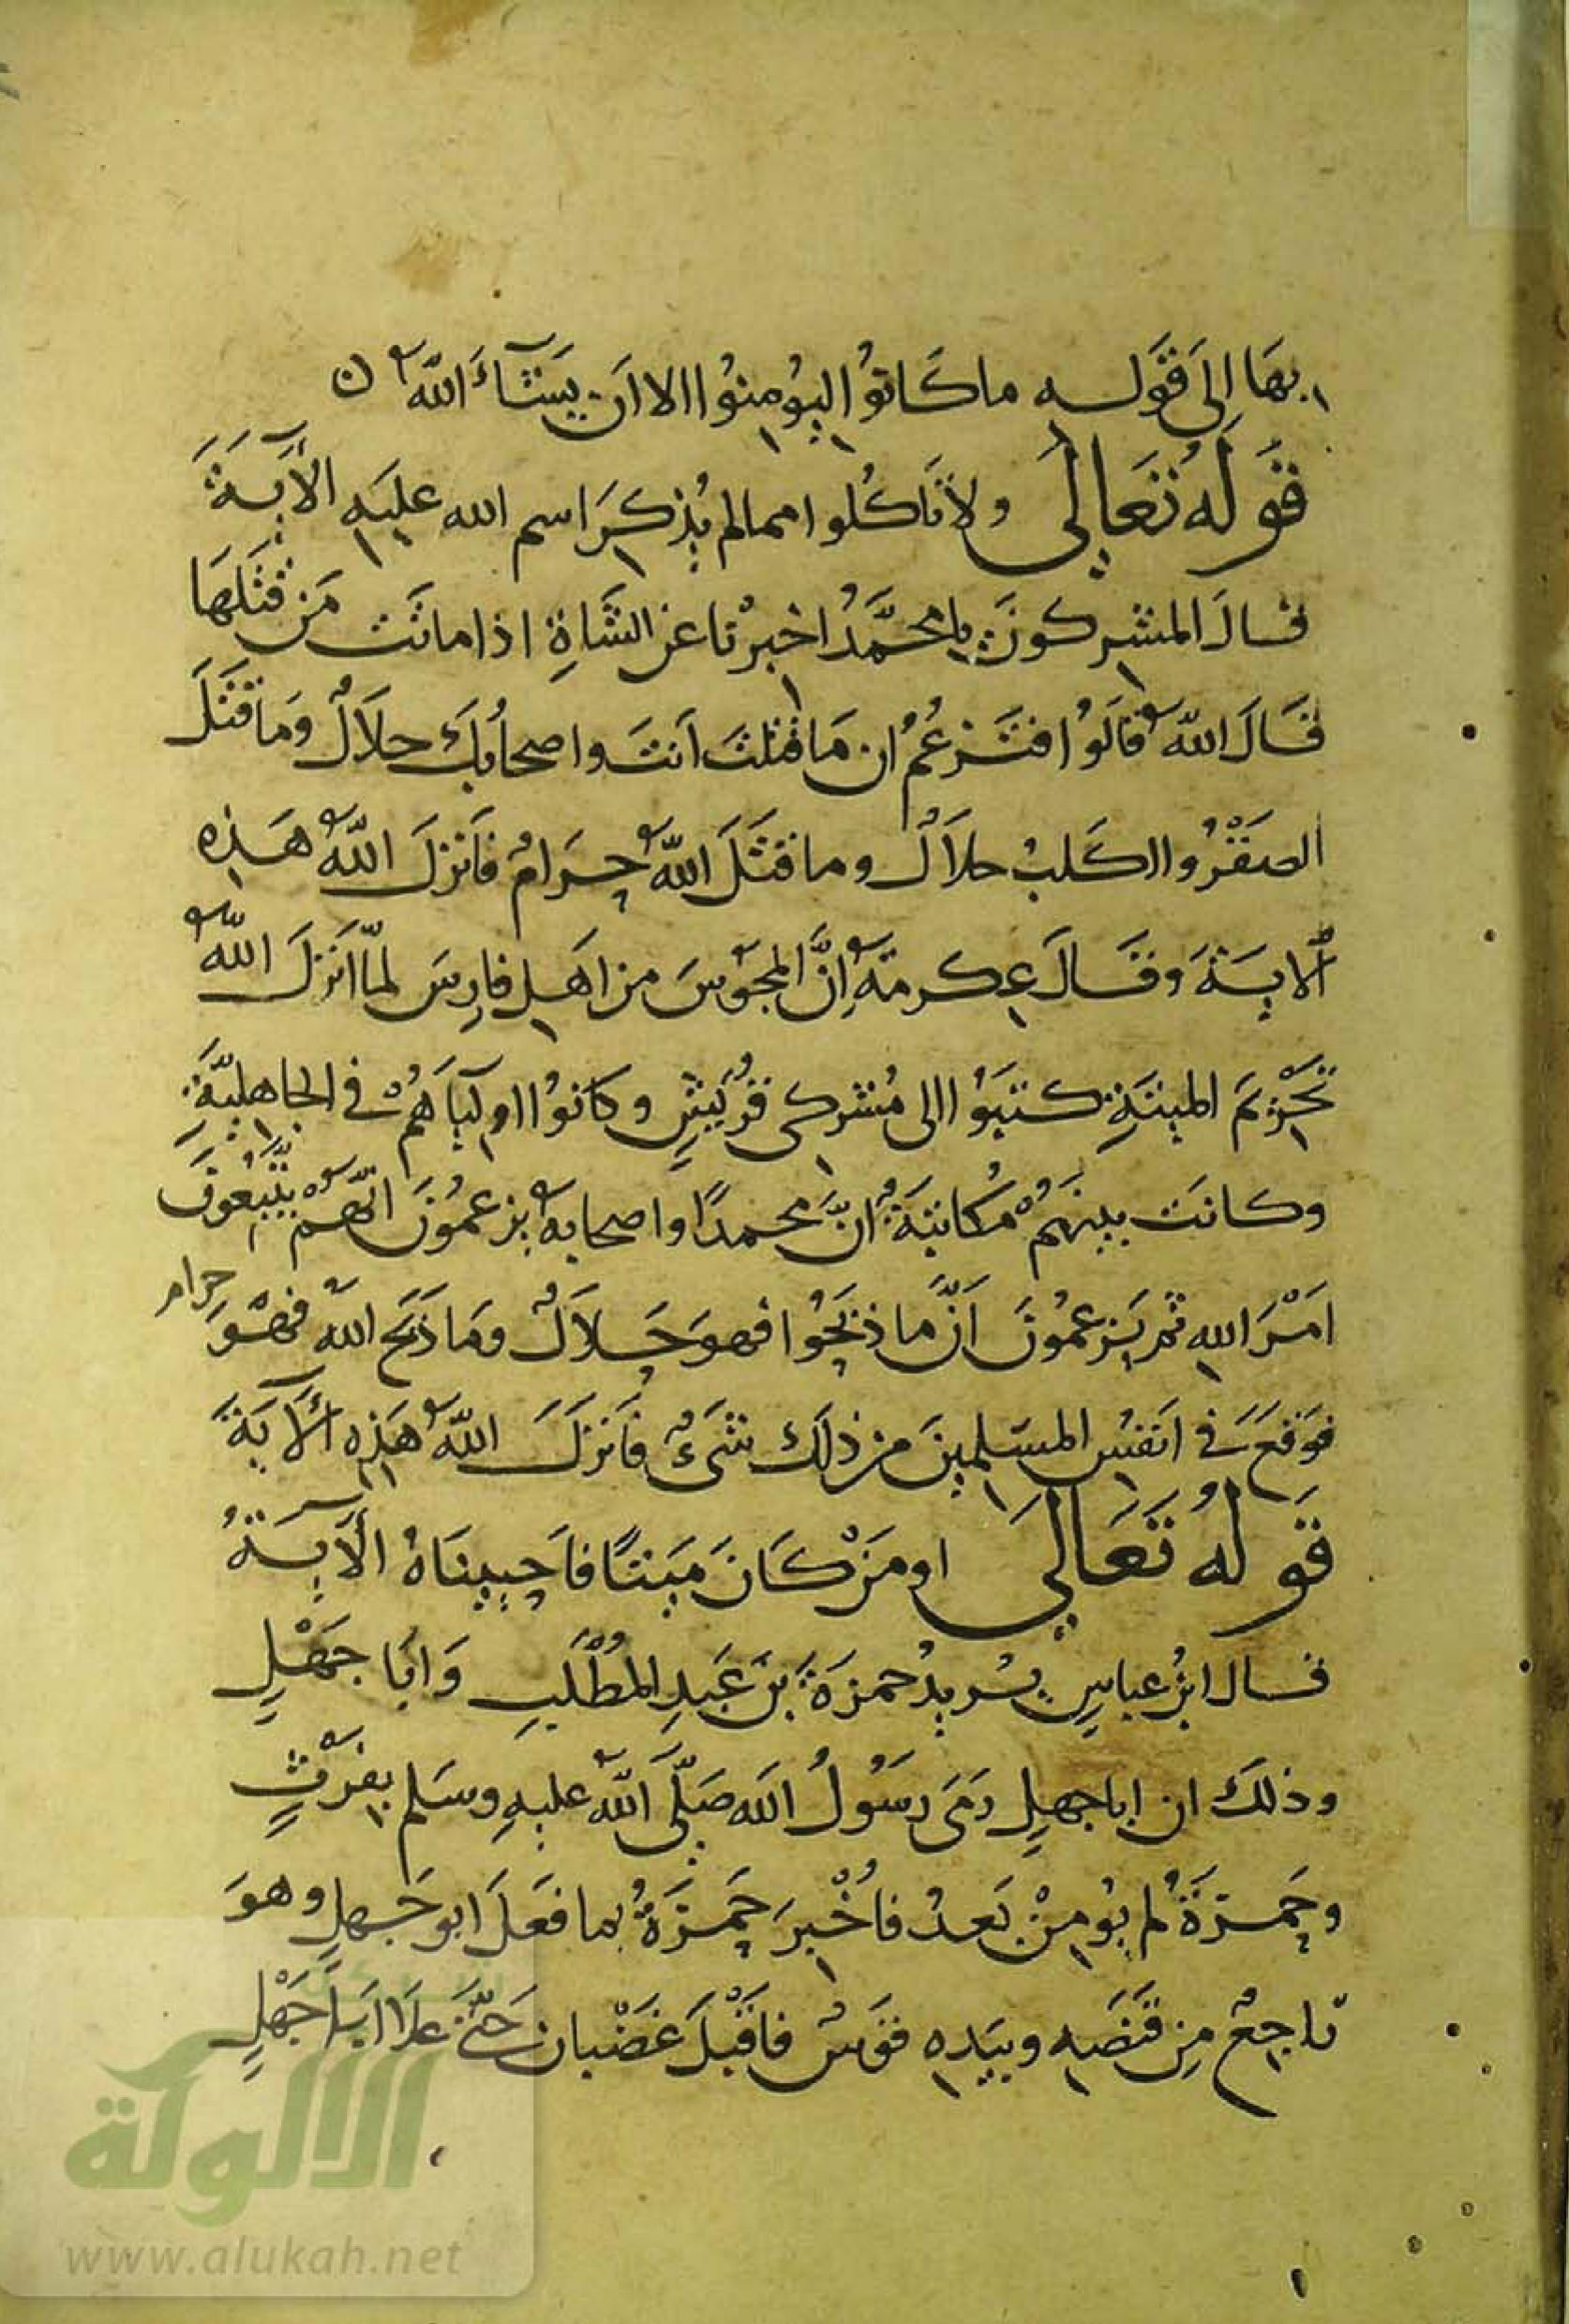 بهَا إلى قَوله ما كَانوُا ليُومِنوُا الا ان يَشَآءَ اللّه ن
قَولهُ تَعَالى ولا تَاكُلوا مما لم يُذكَر اسم الله عليَهِ الآيَةَ
قالَ المشركونَ يا محمَّدُ اخبرْنا عن الشَاةِ اذا ماتَت مَن قتَلَهَا
قَالَ اللّه قالَوُا فتَزعُمُ ان مَا قتلتَ اَنتَ واصحابُكَ حلاَلٌ وَمَا قتَلَ
الصَقْرُ والكَلبُ حلاَلٌ وما قتَلَ اللّهُ حَرَامٌ فَانزلَ اللّهُ هَذِه
الايَةَ وقَالَ عِكرمَةُ اِنَّ المجوُسَ من اَهلِ فارِسَ لمّا اَنزلَ اللّهُ
تَحْرِيمَ الميتَةِ كتَبَوُا الى مُشركى قُريَشٍ وكَانوُا اوليَاَهُمْ في الجاهِليَّةِ
وكانَت بينَهمُ مُكاتبَةٌ اَنَّ محمدًا واصحابهُ يزعمُونَ انّهُم يتَّبعُونَ
امْرَ اللهِ ثم يَزعمُونَ اَنَّ ما ذبَحُوا فهوَ حَلاَلٌ ومَا ذبَح اللهُ فهُوَ حرام
فوَقعَ في انفسِ المسَلمِينَ من ذلَك شَىءٌ فاَنزلَ اللّهُ هَذِه الآيَةَ
قَولهُ تَعَالى اومَنْ كَانَ مَيتًا فاَحييِنَاهُ الآيَةُ
قال ابنُ عباسٍ يُريدُ حمزَةَ بنَ عَبدِ المُطْلَبِ وَابَا جَهْلٍ
وذلكَ ان اباجهلٍ رَمَى رسَوُلُ اللَه صَلَّى اللّهُ عليهِ وسَلم بِفَرْثٍ
وحَمزَةُ لم يُومِنْ بَعدُ فاُخْبرَ حَمزَةُ بما فعَلَ ابو جَهلٍ وهوَ
راجِعٌ مِن قَنَصِه وبيَدِه قوَسٌ فاَقبْلَ غَضْبان حَتّىَ علَا ابَا جَهْلٍ
شبكة
الألوكة
www.alukah.net